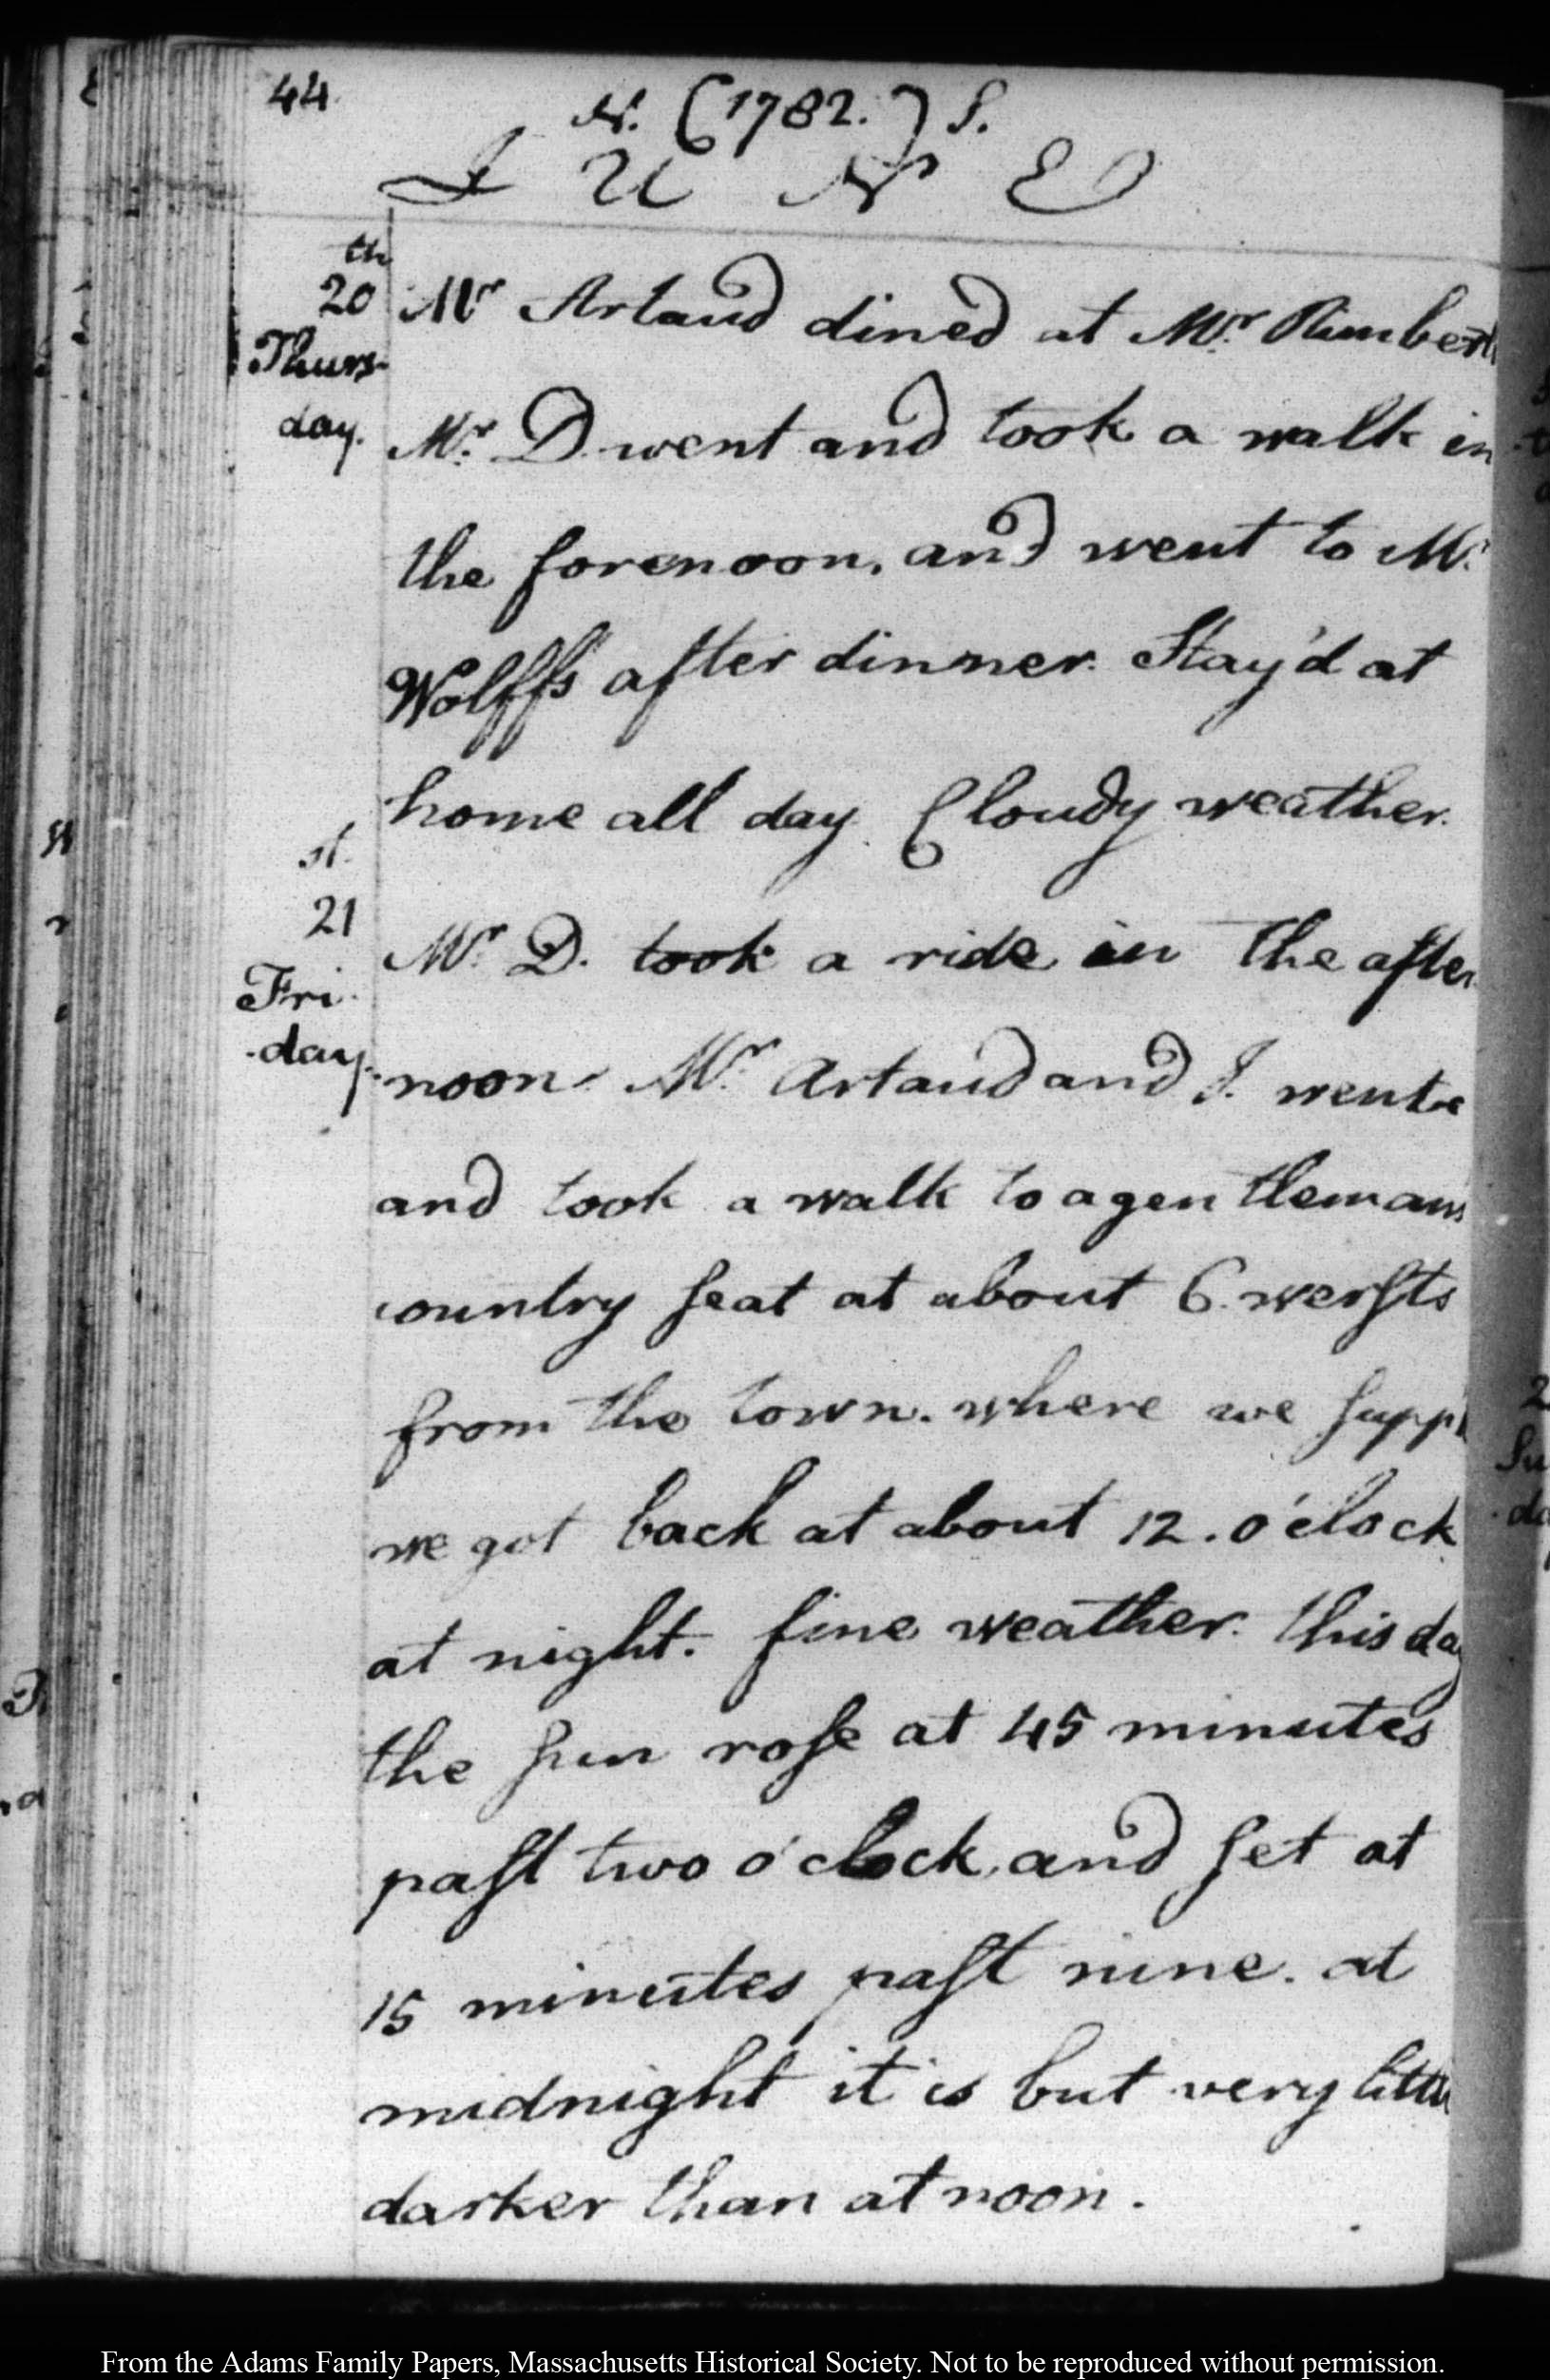 44
N. (1782.) S.
J U N E
th
20
Thurs-
day.
Mr Artaud dined at Mr. Rimbert
Mr. D. went and took a walk in
the forenoon, and went to Mr.
Wolff's after dinner. Stay'd at
home all day. Cloudy weather.
st.
21
Fri-
-day.
Mr. D. took a ride in the after
noon. Mr. Artaud and I. went
and took a walk to a gentlemans
country seat at about 6. wersts
from the town. where we
we got back at about 12. o'clock
at night. fine weather. this day
the sun rose at 45 minutes
past two o'clock, and set at
15 minutes past nine. at
midnight it is but very little
darker than at noon.
From the Adams Family Papers, Massachusetts Historical Society. Not to be reproduced without permission.